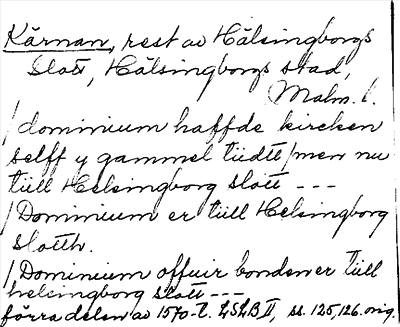 Kärnan, rest av Hälsingborgs
Slott, Hälsingborgs stad,
Malm. l.
/dominium haffde kircken
selff y gammel tiidtt/men nu
tiill Helsingborg slott ---
/Dominium er tiill Helsingborg
slotth.
/Dominium offuir bonden er tiill
helsingborg slott ---
förra delen av 1570-t. LSLB II, ss. 125, 126. orig.